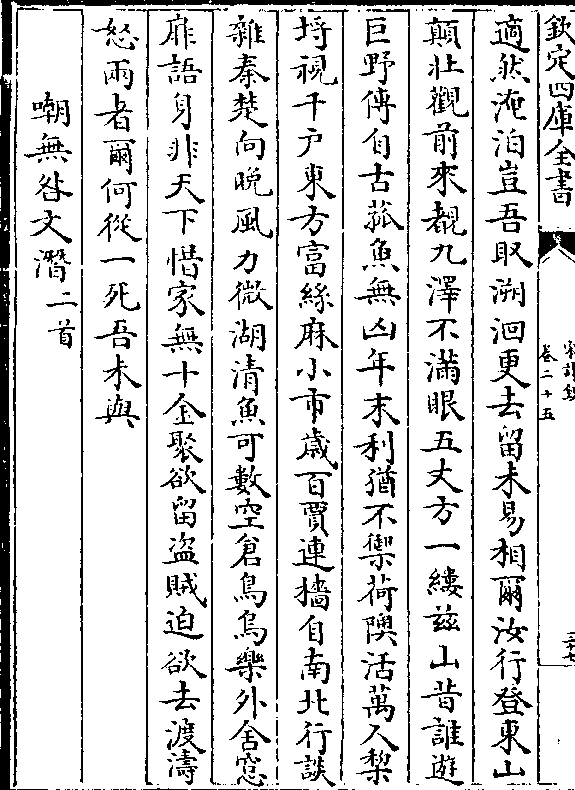 欽定四庫全書
宋詩鈔
卷二十五
適然淹泊豈吾取溯洄更去留未易相爾汝行登東山
顛壯觀前來覩九澤不滿眼五丈方一縷兹山昔誰遊
巨野傳自古菰魚無凶年末利猶不禦荷陂活萬人棃
埓視千户東方富絲麻小市歲百賈連檣自南北行談
雜秦楚向晚風力微湖清魚可數空倉鳥烏樂外舍窓
扉語身非天下惜家無十金聚欲留盜賊迫欲去渡濤
怒兩者爾何從一死吾未與
嘲無咎文潛二首